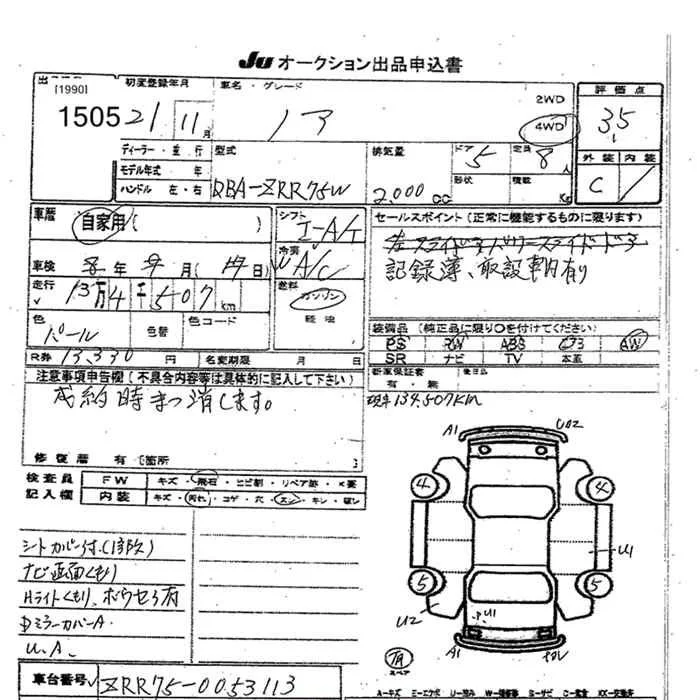 Ju オークション出品申込書
出 [1990] 1505
初度登録年月 21 11月
車名・グレード ノア 2WD 4WD
評価点 3.5
外装 内装
C
ディーラー・並行 型式 DBA-ZRR75W
モデル年式 年
ハンドル 左・右
排気量 2.000 cc
ドア 5 定員 8 人
形状 積載 Kg
車歴 自家用( )
シフト I-A/T
冷房 A/C
燃料 ガソリン
軽油
車検 年 9月( 日)
走行 13万4千507km
色 パール 色替 色コード
R券 13,330 円 名変期限 月 日
セールスポイント(正常に機能するものに限ります)
記録簿、取説 有り
装備品(純正品に限り○を付けてください)
PS PW ABS AW
SR ナビ TV 本革
新車保証書 後日品
有・無
注意事項申告欄(不具合内容等は具体的に記入して下さい)
成約時まっ消します。
現車134.507KM
修復歴 有(箇所 )
検査員記入欄
FW キズ・飛石・ヒビ割・リペア跡・X要
内装 キズ・汚れ・コゲ・穴・スレ・キレ・破レ
シートカバー付(1部欠)
ナビ画面くもり
Hライトくもり、ボウセラ有
DミラーカバーA.
U.A.
車台番号 ZRR75-0053113
A1 U02
4 4
U1
5 5
U2 P U1
A1
スペア
A-キズ E-エクボ U-凹み W-補修跡 S-サビ C-腐食 XX-交換済